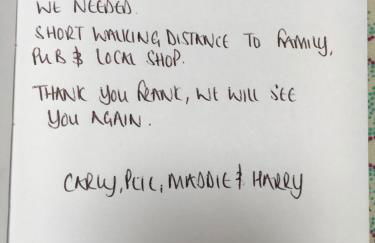 WE NEEDED.
SHORT WALKING DISTANCE TO FAMILY,
PUB & LOCAL SHOP.
THANK YOU FRANK, WE WILL SEE
YOU AGAIN.
CARLY, MADDIE & HARRY